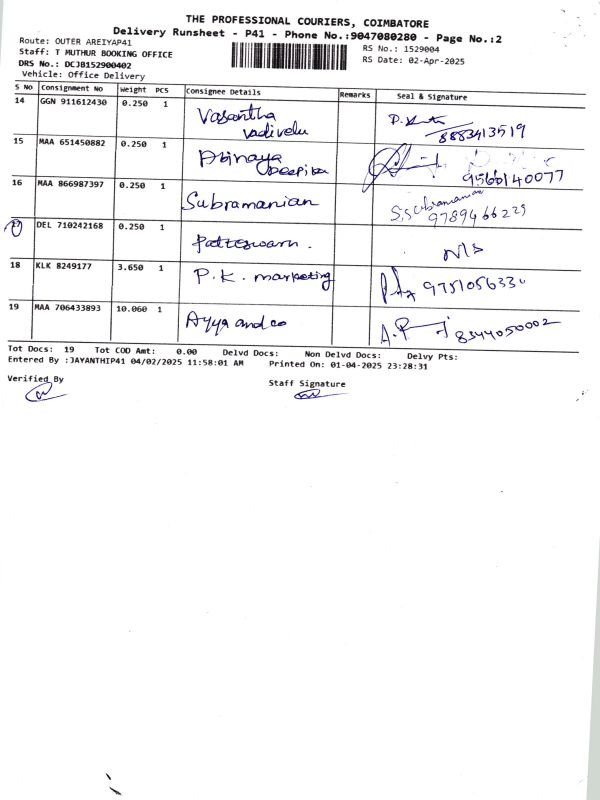 THE PROFESSIONAL COURIERS, COIMBATORE
Delivery Runsheet - P41 - Phone No.:9047080280 - Page No.:2
Route: OUTER AREIYAP41
RS No.: 1529004
Staff: T MUTHUR BOOKING OFFICE
RS Date: 02-Apr-2025
DRS No.: DCJB152900402
Vehicle: Office Delivery
S No Consignment No Weight PCS Consignee Details Remarks Seal & Signature
14 GGN 911612430 0.250 1 Vasantha
Vadivelu
8883413519
15 MAA 651450882 0.250 1 Abinaya
Deepika
9566140077
16 MAA 866987397 0.250 1 Subramanian S.Subramanian
9789466229
17 DEL 710242168 0.250 1 N/S
18 KLK 8249177 3.650 1 P.K. marketing 9751056330
19 MAA 706433893 10.060 1 Ayya and co 8344050002
Tot Docs: 19 Tot COD Amt: 0.00 Delvd Docs: Non Delvd Docs: Delvy Pts:
Entered By :JAYANTHIP41 04/02/2025 11:58:01 AM Printed On: 01-04-2025 23:28:31
Verified By
Staff Signature